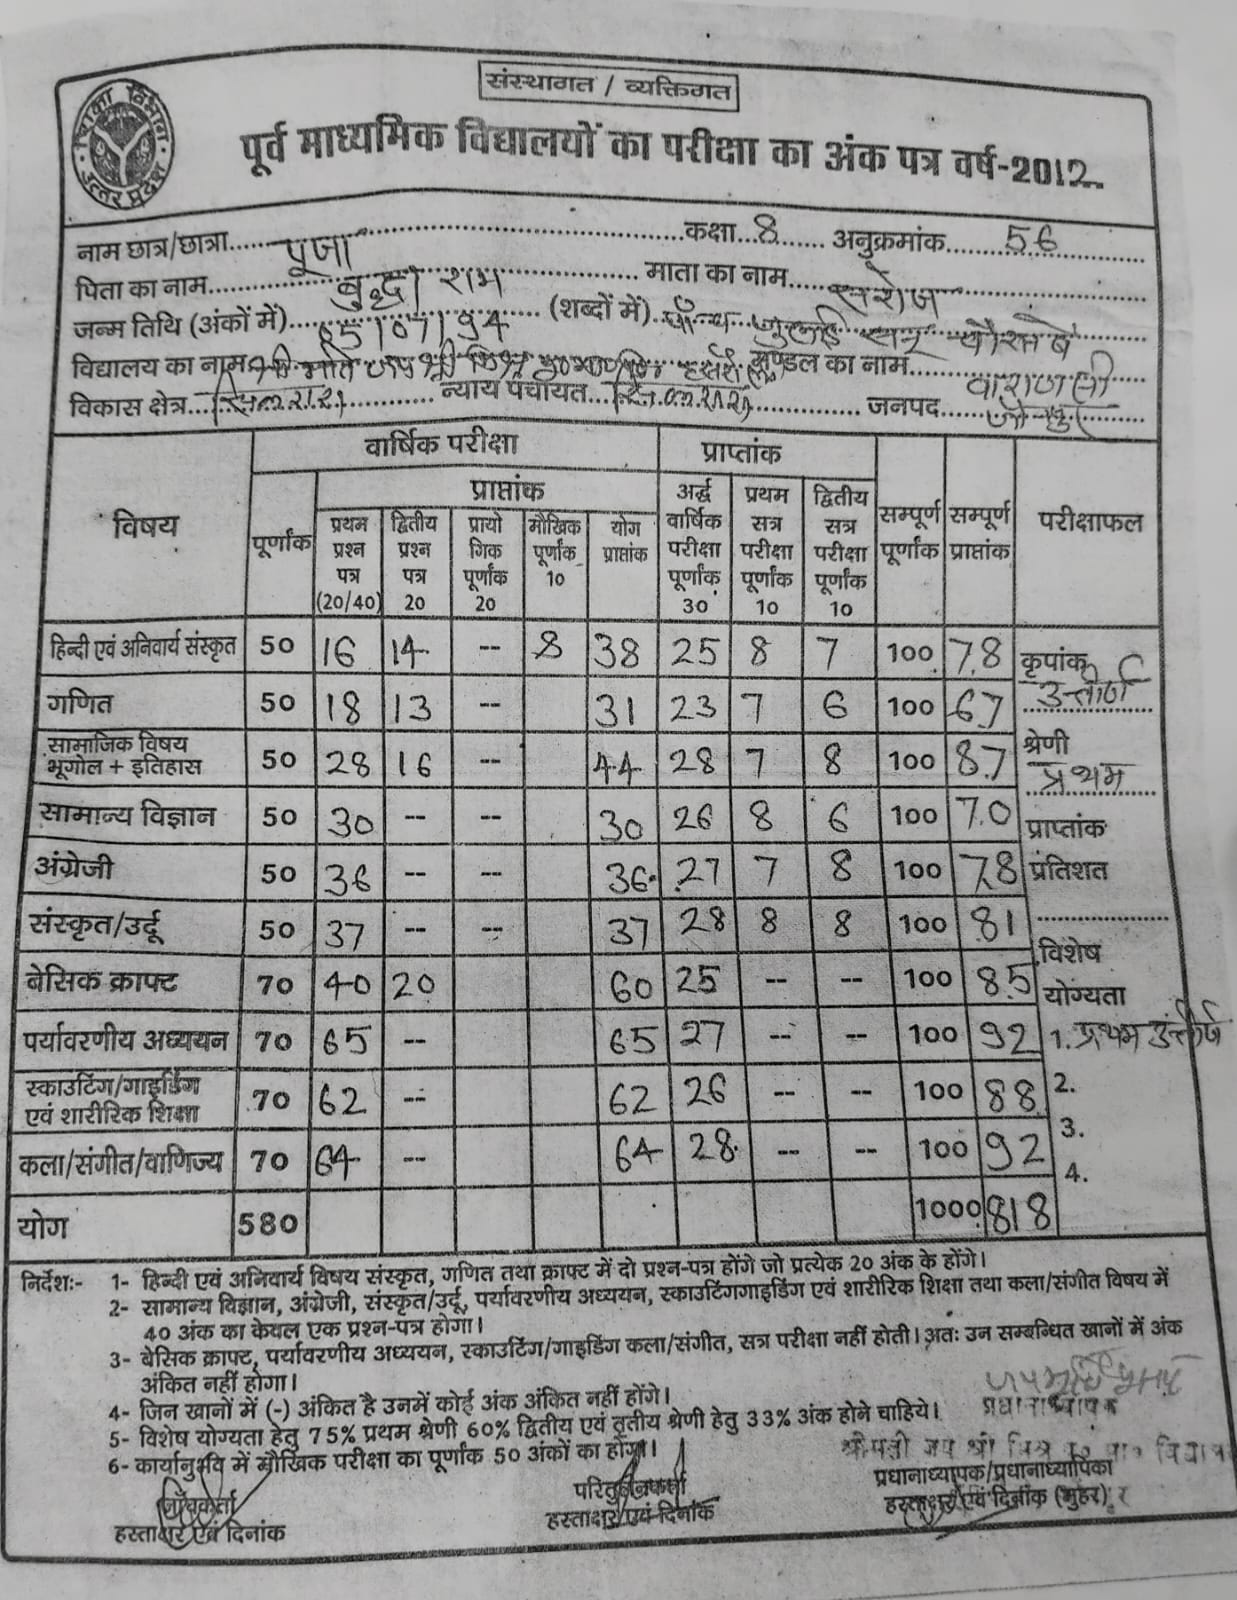 संस्थागत / व्यक्तिगत
शिक्षा विभाग उत्तर प्रदेश
पूर्व माध्यमिक विद्यालयों का परीक्षा का अंक पत्र वर्ष-2012
नाम छात्र/छात्रा पूजा कक्षा 8 अनुक्रमांक 56
पिता का नाम बुद्धा राम माता का नाम सरोज
जन्म तिथि (अंकों में) 05/07/94 (शब्दों में) पाँच जुलाई सन् चौरानबे
विद्यालय का नाम मण्डल का नाम वाराणसी
विकास क्षेत्र न्याय पंचायत जनपद जौनपुर
विषय वार्षिक परीक्षा प्राप्तांक सम्पूर्ण पूर्णांक सम्पूर्ण प्राप्तांक परीक्षाफल
पूर्णांक प्राप्तांक अर्द्ध वार्षिक परीक्षा पूर्णांक 30 प्रथम सत्र परीक्षा पूर्णांक 10 द्वितीय सत्र परीक्षा पूर्णांक 10
प्रथम प्रश्न पत्र (20/40) द्वितीय प्रश्न पत्र 20 प्रायोगिक पूर्णांक 20 मौखिक पूर्णांक 10 योग प्राप्तांक
हिन्दी एवं अनिवार्य संस्कृत 50 16 14 -- 8 38 25 8 7 100 78 कृपांक
उत्तीर्ण
गणित 50 18 13 -- 31 23 7 6 100 67
सामाजिक विषय श्रेणी
भूगोल + इतिहास 50 28 16 -- 44 28 7 8 100 87 प्रथम
सामान्य विज्ञान 50 30 -- -- 30 26 8 6 100 70 प्राप्तांक
अंग्रेजी 50 36 -- -- 36 27 7 8 100 78 प्रतिशत
संस्कृत/उर्दू 50 37 -- -- 37 28 8 8 100 81 विशेष
बेसिक क्राफ्ट 70 40 20 60 25 -- -- 100 85 योग्यता
पर्यावरणीय अध्ययन 70 65 -- 65 27 -- -- 100 92 1. प्रथम उत्तीर्ण
स्काउटिंग/गाइडिंग
एवं शारीरिक शिक्षा 70 62 -- 62 26 -- -- 100 88 2.
कला/संगीत/वाणिज्य 70 64 -- 64 28 -- -- 100 92 3.
4.
योग 580 1000 818
निर्देश:- 1- हिन्दी एवं अनिवार्य विषय संस्कृत, गणित तथा क्राफ्ट में दो प्रश्न-पत्र होंगे जो प्रत्येक 20 अंक के होंगे।
2- सामान्य विज्ञान, अंग्रेजी, संस्कृत/उर्दू, पर्यावरणीय अध्ययन, स्काउटिंगगाइडिंग एवं शारीरिक शिक्षा तथा कला/संगीत विषय में
40 अंक का केवल एक प्रश्न-पत्र होगा।
3- बेसिक क्राफ्ट, पर्यावरणीय अध्ययन, स्काउटिंग/गाइडिंग कला/संगीत, सत्र परीक्षा नहीं होती। अतः उन सम्बन्धित खानों में अंक
अंकित नहीं होगा।
4- जिन खानों में (-) अंकित है उनमें कोई अंक अंकित नहीं होंगे।
5- विशेष योग्यता हेतु 75% प्रथम श्रेणी 60% द्वितीय एवं तृतीय श्रेणी हेतु 33% अंक होने चाहिये।
प्रधानाध्यापक
6- कार्यानुभव में मौखिक परीक्षा का पूर्णांक 50 अंकों का होगा।
जाँचकर्ता
हस्ताक्षर एवं दिनांक
हस्ताक्षर एवं दिनांक
प्रधानाध्यापक/प्रधानाध्यापिका
हस्ताक्षर एवं दिनांक (मुहर)